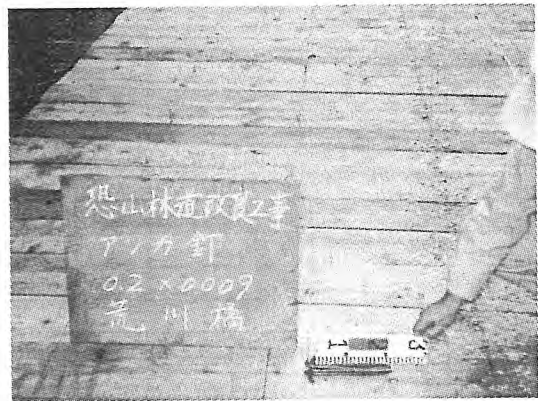 恐山林道改良工事
アンカ釘
0.2×0009
荒川橋
1 3